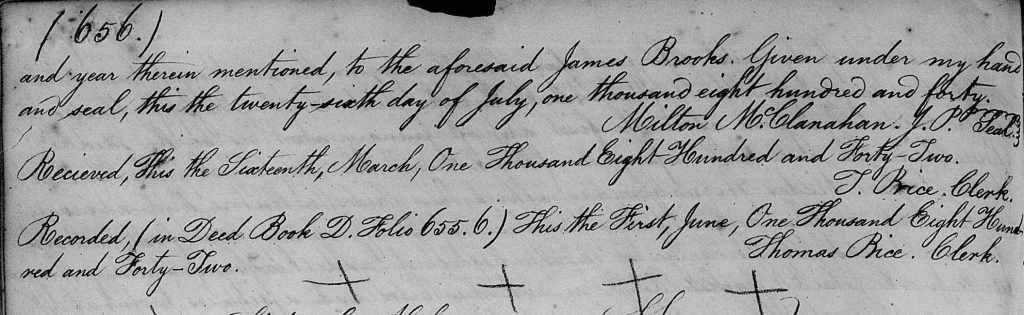 ( 656.)
and year therein mentioned, to the aforesaid James Brooks. Given under my hand
and seal, this the twenty-sixth day of July, one thousand eight hundred and forty.
Milton McClanahan. J. P. Seal.
Recieved, This the Sixteenth, March, One Thousand Eight Hundred and Forty-Two.
T. Price. Clerk.
Recorded, (in Deed Book D. Folio 655.6.) This the First, June, One Thousand Eight Hund-
red and Forty-Two.
Thomas Price. Clerk.